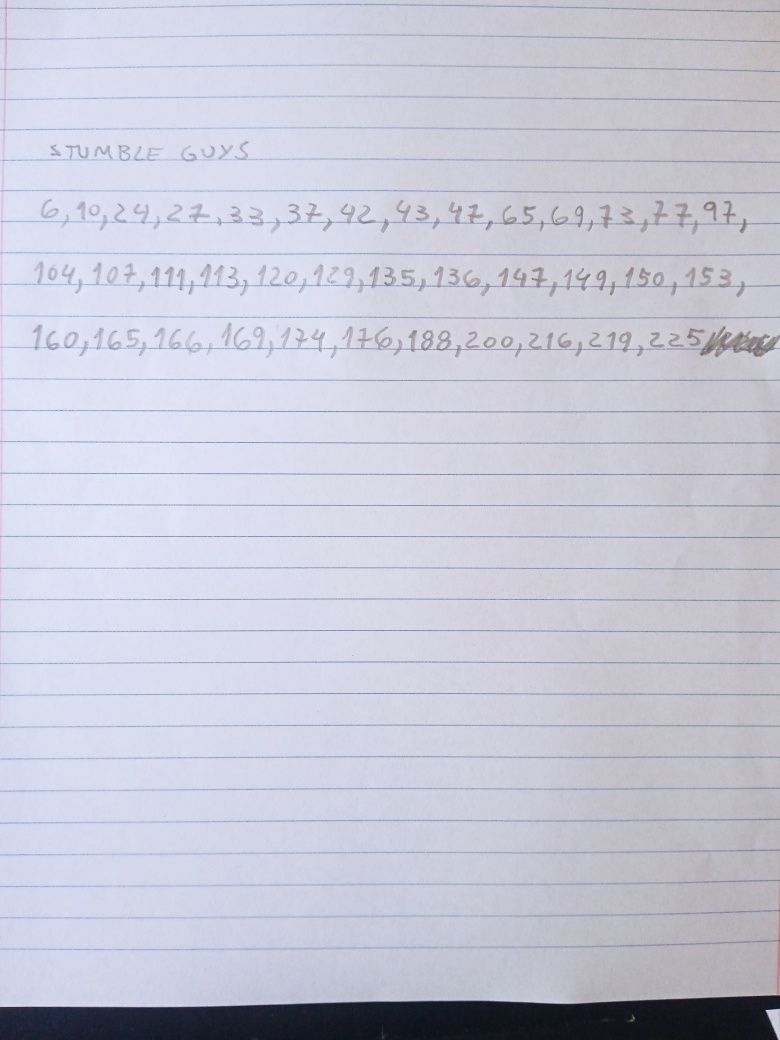 STUMBLE GUYS
6,10,24,27,33,37,42,43,47,65,69,73,77,97,
104,107,111,113,120,129,135,136,147,149,150,153,
160,165,166,169,174,176,188,200,216,219,225